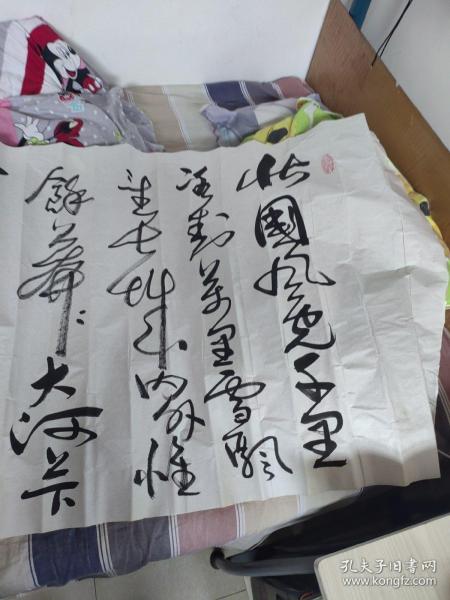 北國風光千里
冰封萬里雪飄
望長城内外惟
餘莽〻大河上下
孔夫子旧书网
www.kongfz.com